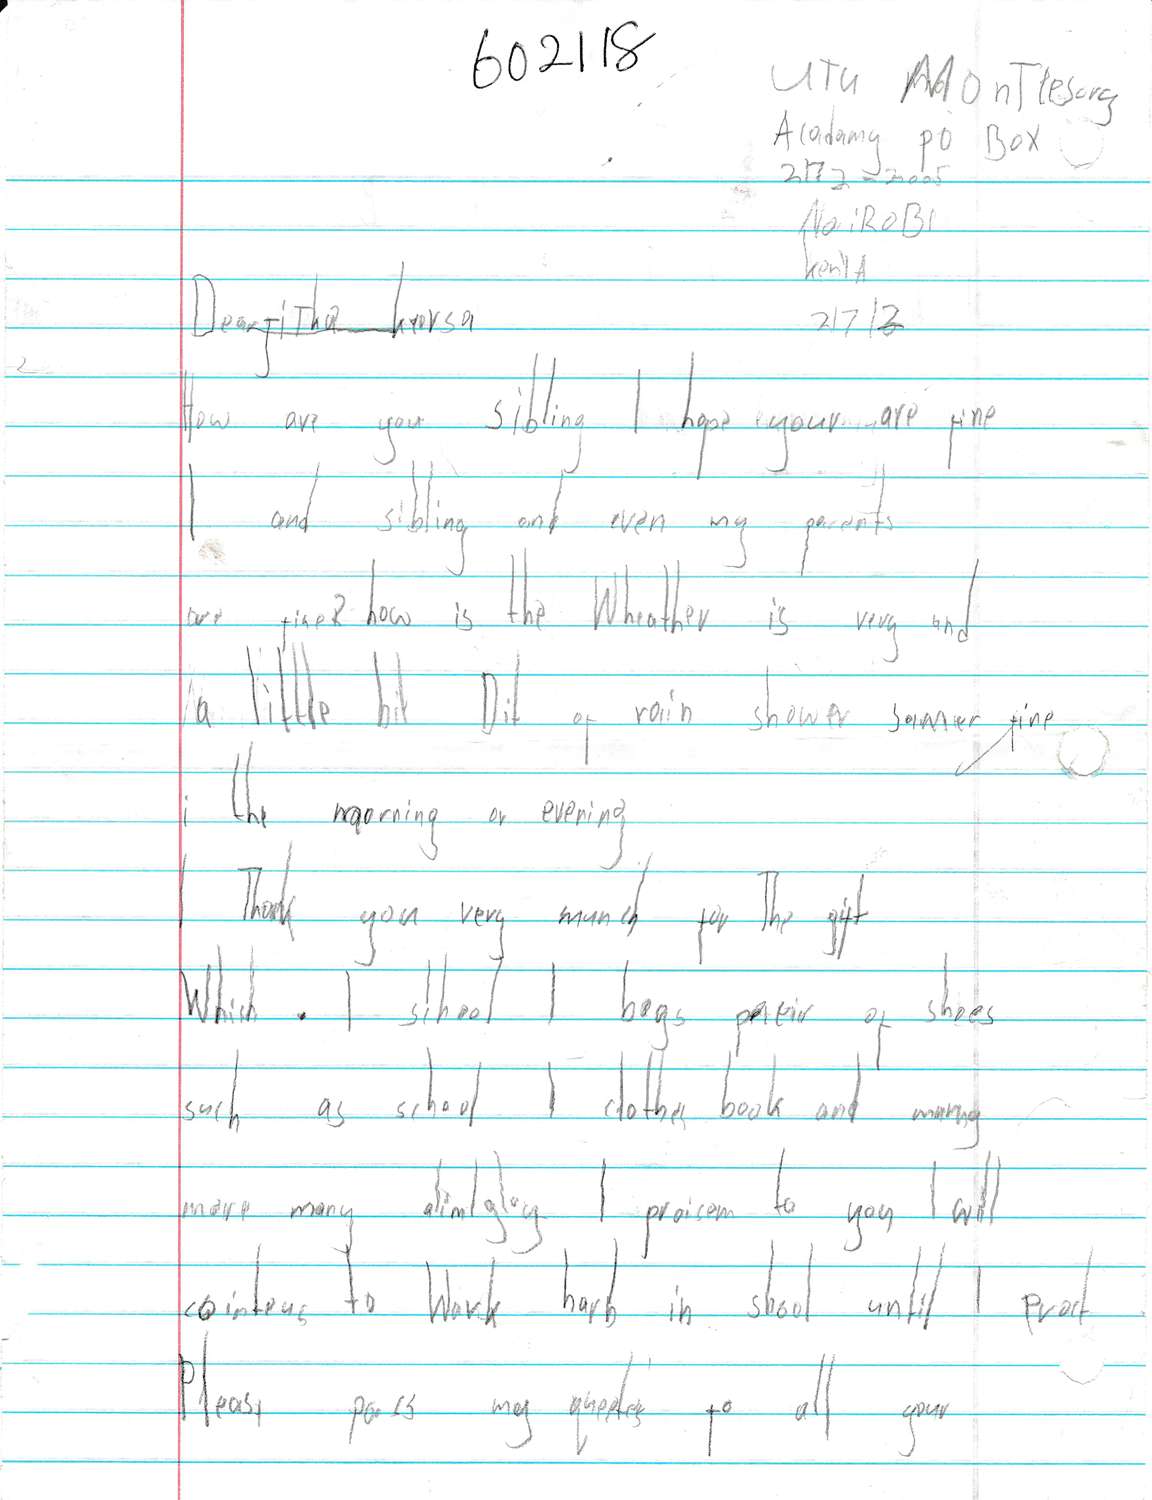 602118
UTU MonTTesorg
Acadamy po Box
NaiROBI
kenYA
217/3
Dear
How are you sibling I hope your are fine
I and sibling and even my parents
are fine? how is the Wheather is very and
a little bit Dit of rain shower sammer fine
i the morning or evening
I Thank you very munch for The gift
Which . I school I bags pateir of shoes
such as school I clothes book and
more many I proisom to you I will
cointeus to Work harh in shool until I
Pleasi pass my to all your